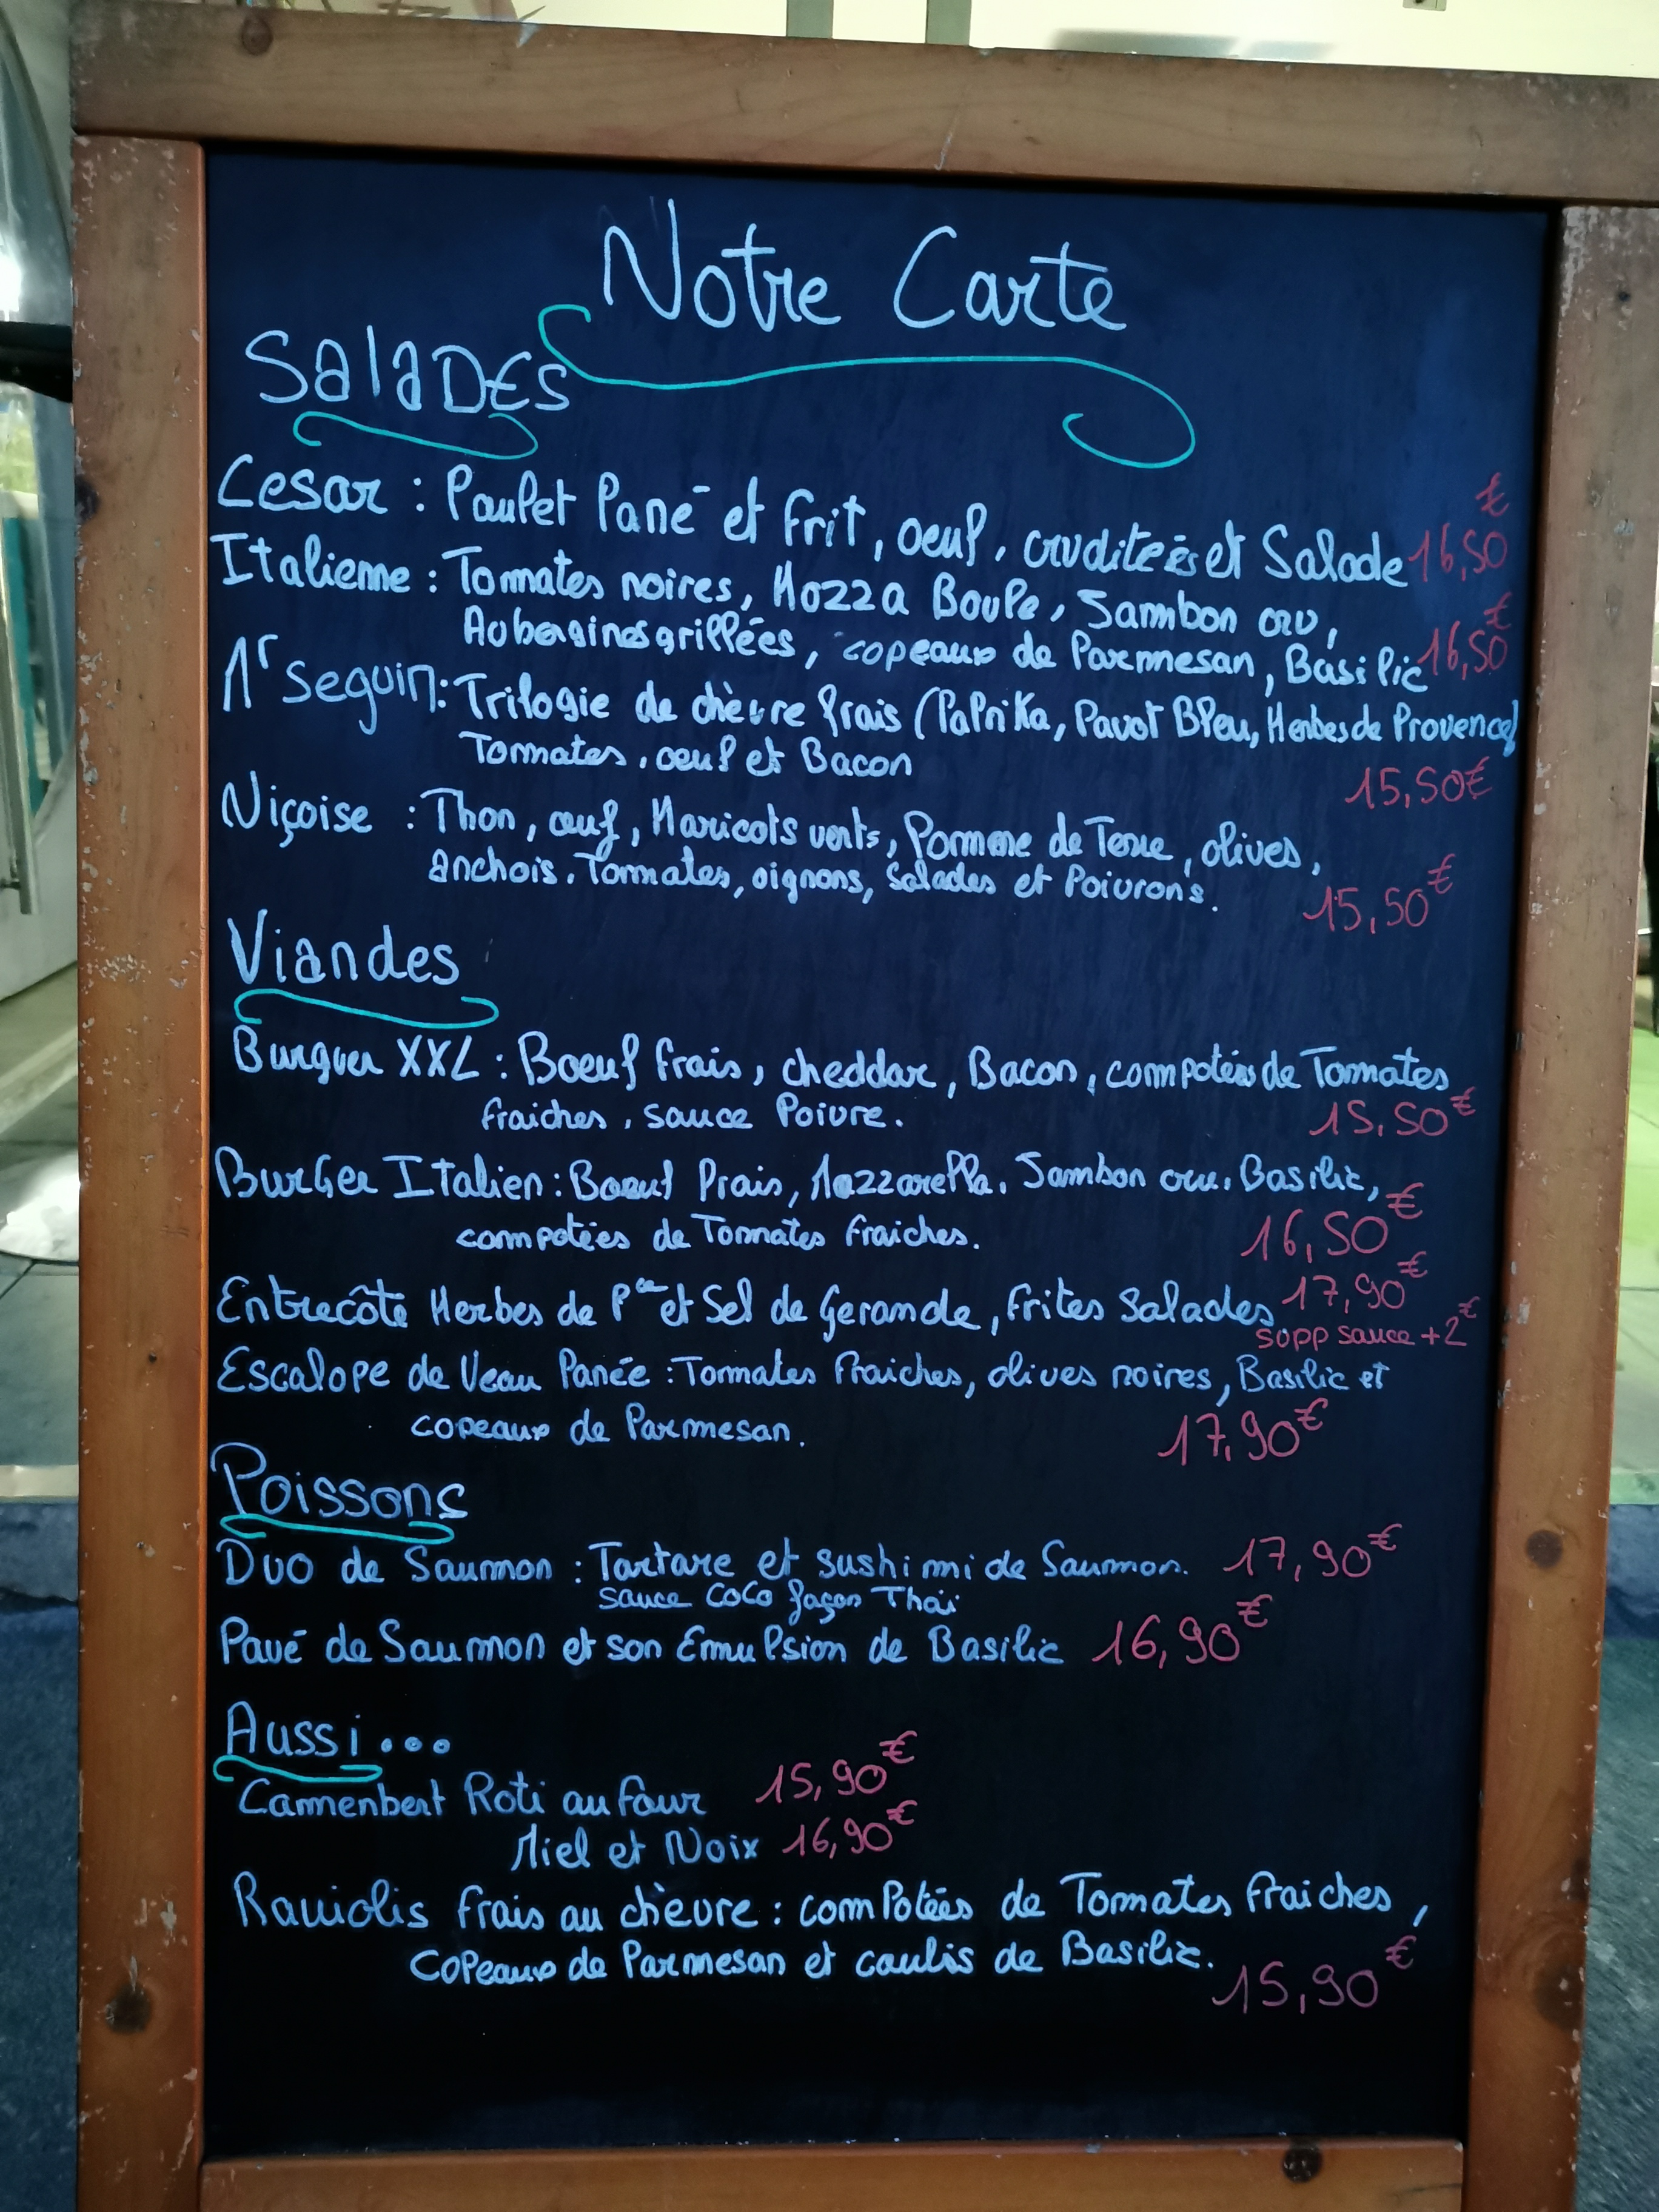 Notre Carte
Salades
Cesar : Poulet Pané et frit, oeuf, cruditées et Salade 16,50€
Italienne : Tomates noires, Mozza Boule, Jambon cru,
Aubergines grillées, copeaux de Parmesan, Basilic 16,50€
Mr Seguin : Trilogie de chèvre frais (Paprika, Pavot Bleu, Herbes de Provence)
Tomates, oeuf et Bacon
15,50€
Niçoise : Thon, œuf, Haricots verts, Pomme de Terre, olives,
anchois, Tomates, oignons, Salades et Poivrons.
15,50€
Viandes
Burguer XXL : Boeuf frais, cheddar, Bacon, compotées de Tomates
fraiches, sauce Poivre. 15,50€
BurGer Italien : Boeuf frais, Mozzarella, Jambon cru, Basilic,
compotées de Tomates fraiches. 16,50€
Entrecôte Herbes de Pce et Sel de Gerande, frites Salades 17,90€
supp sauce +2€
Escalope de Veau Panée : Tomates fraiches, olives noires, Basilic et
copeaux de Parmesan. 17,90€
Poissons
Duo de Saumon : Tartare et sushimi de Saumon. 17,90€
sauce CoCo façon Thaï
Pavé de Saumon et son Emulsion de Basilic 16,90€
Aussi...
Camenbert Roti au four 15,90€
Miel et Noix 16,90€
Raviolis frais au chèvre : comPotées de Tomates fraiches,
Copeaux de Parmesan et coulis de Basilic.
15,90€